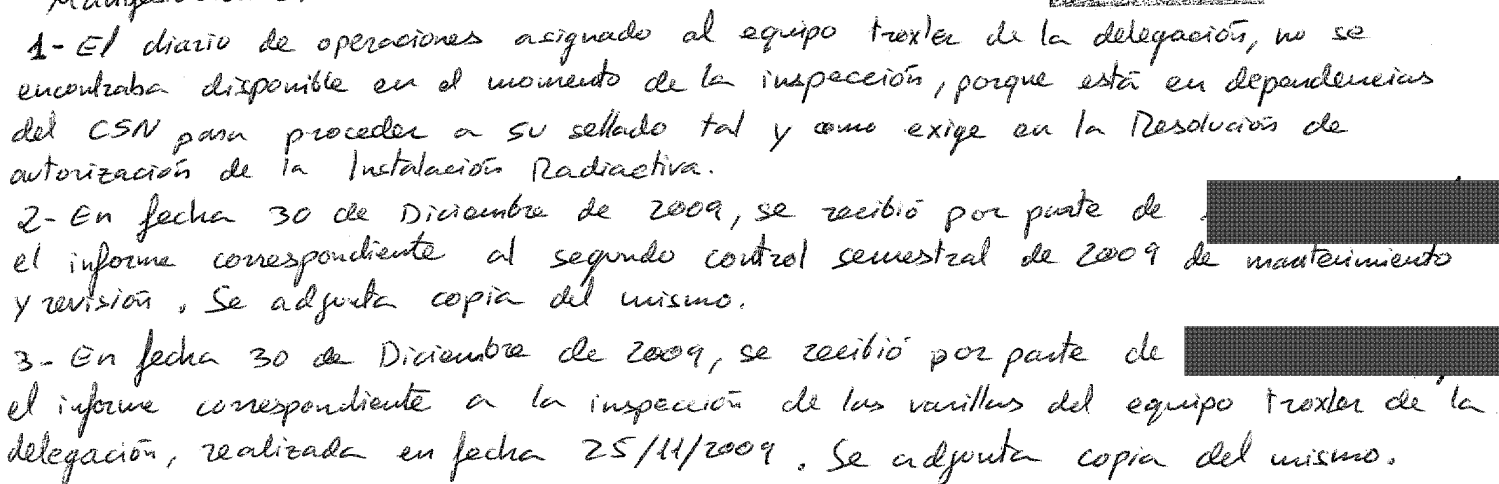 1- El diario de operaciones asignado al equipo troxler de la delegación, no se
encontraba disponible en el momento de la inspección, porque está en dependencias
del CSN para proceder a su sellado tal y como exige en la Resolución de
autorización de la Instalación Radiactiva.
2- En fecha 30 de Diciembre de 2009, se recibió por parte de
el informe correspondiente al segundo control semestral de 2009 de mantenimiento
y revisión. Se adjunta copia del mismo.
3- En fecha 30 de Diciembre de 2009, se recibió por parte de
el informe correspondiente a la inspección de las varillas del equipo troxler de la
delegación, realizada en fecha 25/11/2009. Se adjunta copia del mismo.